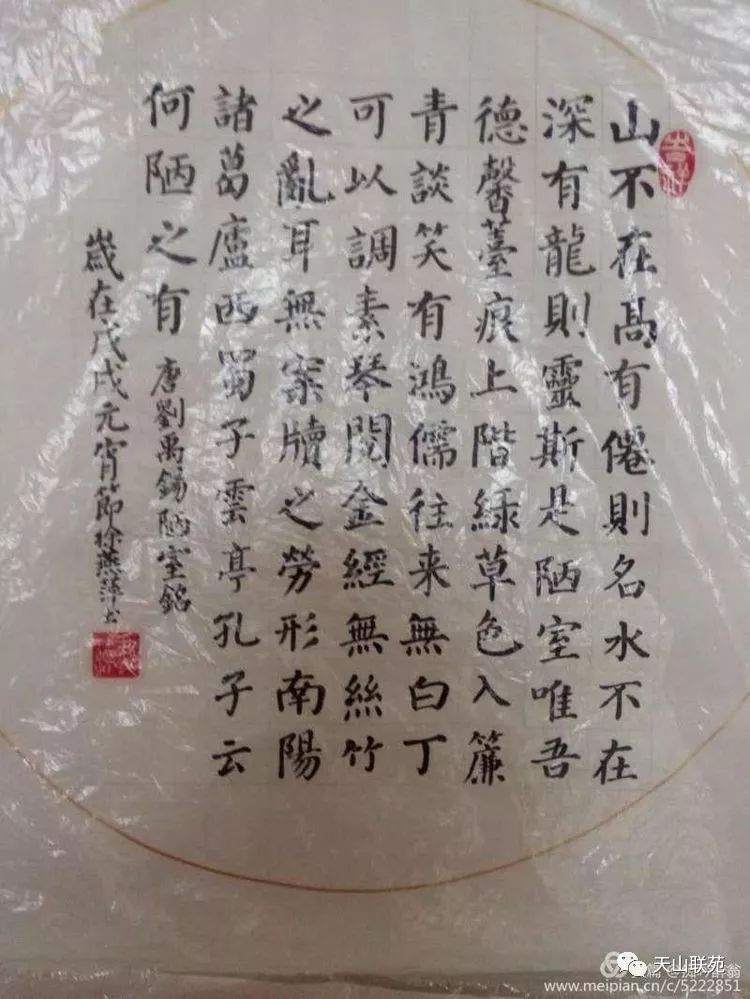 山不在高有僊則名水不在
深有龍則靈斯是陋室唯吾
德馨薹痕上階綠草色入簾
青談笑有鴻儒往来無白丁
可以調素琴閱金經無絲竹
之亂耳無案牘之勞形南陽
諸葛廬西蜀子雲亭孔子云
何陋之有
唐劉禹錫陋室銘
歲在戊戌元宵節徐燕萍书
天山联苑
www.meipian.cn/c/5222851